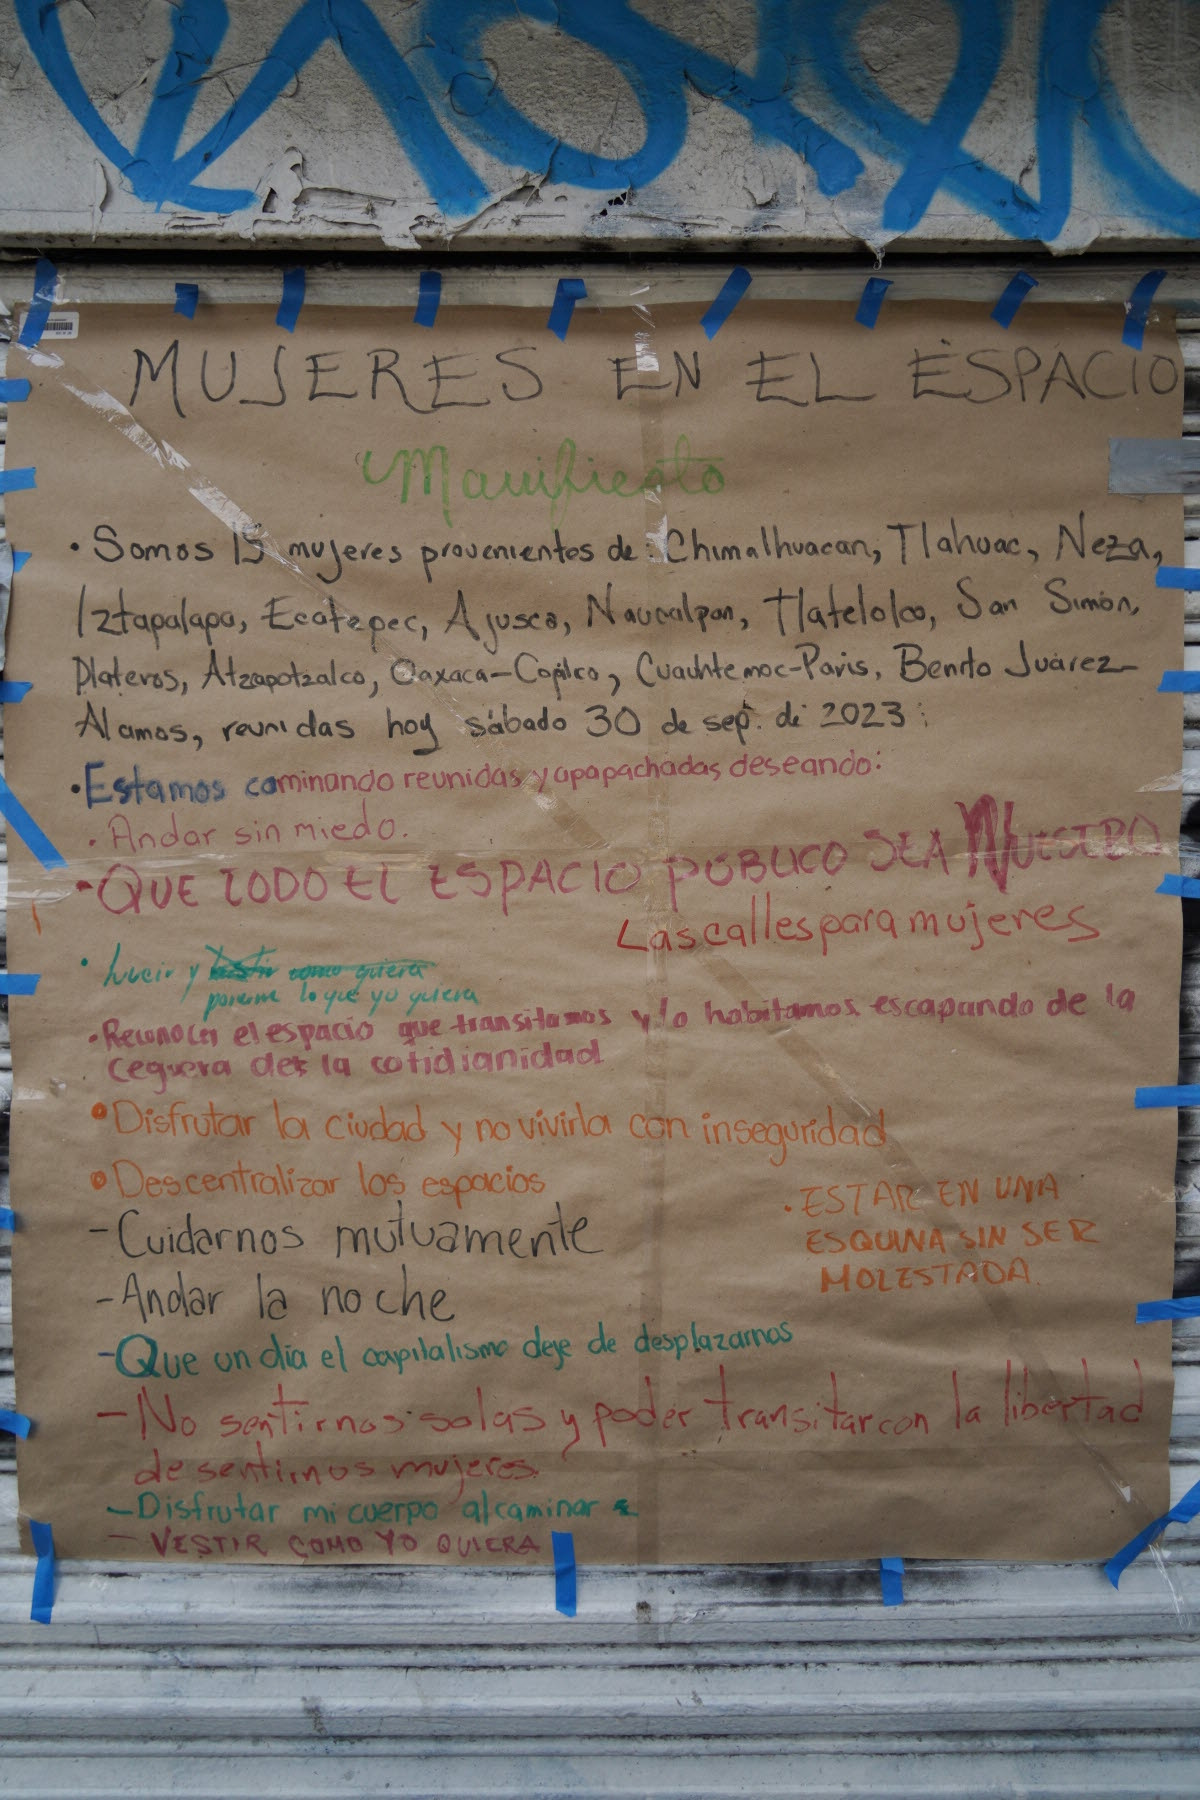 MUJERES EN EL ESPACIO
Manifiesto
• Somos 15 mujeres provenientes de: Chimalhuacan, Tlahuac, Neza,
Iztapalapa, Ecatepec, Ajusco, Naucalpan, Tlatelolco, San Simón,
Plateros, Atzapotzalco, Oaxaca-Copilco, Cuauhtemoc-Paris, Benito Juárez-
Alamos, reunidas hoy sábado 30 de sep. de 2023:
• Estamos caminando reunidas y apapachadas deseando:
• Andar sin miedo.
- QUE TODO EL ESPACIO PÚBLICO SEA NUESTRO
Las calles para mujeres
• Lucir y vestir como quiera
ponerme lo que yo quiera
• Reconocer el espacio que transitamos y lo habitamos escapando de la
ceguera de la cotidianidad
• Disfrutar la ciudad y no vivirla con inseguridad
• Descentralizar los espacios
• ESTAR EN UNA
ESQUINA SIN SER
MOLESTADA
- Cuidarnos mutuamente
- Andar la noche
- Que un día el capitalismo deje de desplazarnos
- No sentirnos solas y poder transitar con la libertad
de sentirnos mujeres
- Disfrutar mi cuerpo al caminar
- VESTIR COMO YO QUIERA